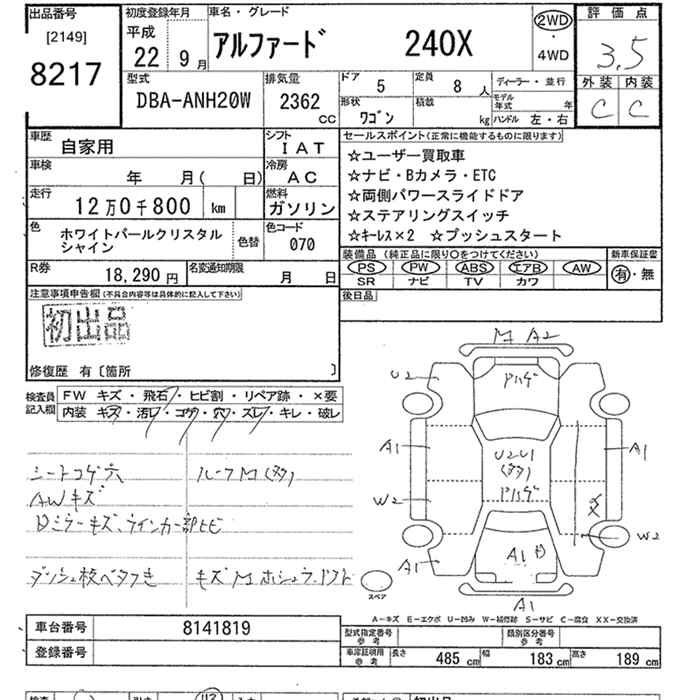 出品番号
[2149]
8217
初度登録年月
平成
22年 9月
車名・グレード
アルファード 240X
2WD
・
4WD
評価点
3.5
外装 内装
C C
型式
DBA-ANH20W
排気量
2362
cc
ドア 5
定員 8 人
形状 ワゴン
積載 kg
ディーラー・並行
モデル年式 年
ハンドル 左・右
車歴
自家用
シフト
IAT
車検
年 月( 日)
冷房
AC
走行
12万0千800 km
燃料
ガソリン
色
ホワイトパールクリスタル
シャイン
色替
色コード
070
R券
18,290円
名変通知期限
月 日
セールスポイント(正常に機能するものに限ります)
☆ユーザー買取車
☆ナビ・Bカメラ・ETC
☆両側パワースライドドア
☆ステアリングスイッチ
☆キーレス×2 ☆プッシュスタート
装備品 (純正品に限り○をつけてください)
新車保証書
PS PW ABS エアB AW
有・無
SR ナビ TV カワ
後日品
注意事項申告欄(不具合内容等は具体的に記入して下さい)
初出品
修復歴 有〔箇所 〕
検査員
記入欄
FW キズ・飛石・ヒビ割・リペア跡・×要
内装 キズ・汚レ・コゲ・穴・スレ・キレ・破レ
シートコゲ穴
ルーフM(多)
AWキズ
Dミラーキズ、ウインカー部ヒビ
キズM
M A2
U2
アハゲ
A1
A1
U2U1
(多)
アハゲ
W2
W2
A1
A1
A1
スペア
A-キズ E-エクボ U-凹み W-補修跡 S-サビ C-腐食 XX-交換済
車台番号
8141819
登録番号
型式指定番号
参考
類別区分番号
参考
車庫証明用
参考
長さ 485 cm
幅 183 cm
高さ 189 cm